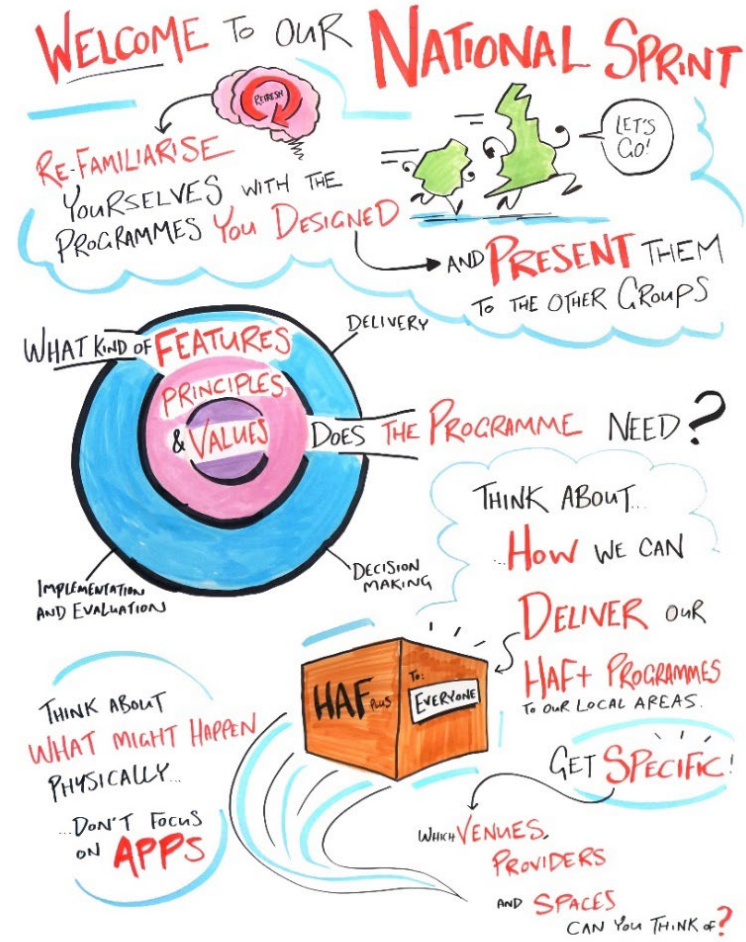 WELCOME TO OUR NATIONAL SPRINT
REFRESH
LET'S
GO!
RE-FAMILIARISE
YOURSELVES WITH THE
PROGRAMMES YOU DESIGNED
AND PRESENT THEM
TO THE OTHER GROUPS
DELIVERY
WHAT KIND OF FEATURES
PRINCIPLES
& VALUES DOES THE PROGRAMME NEED?
DECISION
MAKING
IMPLEMENTATION
AND EVALUATION
THINK ABOUT...
...HOW WE CAN
DELIVER OUR
HAF+ PROGRAMMES
TO OUR LOCAL AREAS.
HAF PLUS
TO:
EVERYONE
THINK ABOUT
WHAT MIGHT HAPPEN
PHYSICALLY...
...DON'T FOCUS
ON APPS
GET SPECIFIC!
WHICH VENUES,
PROVIDERS
AND SPACES
CAN YOU THINK OF?